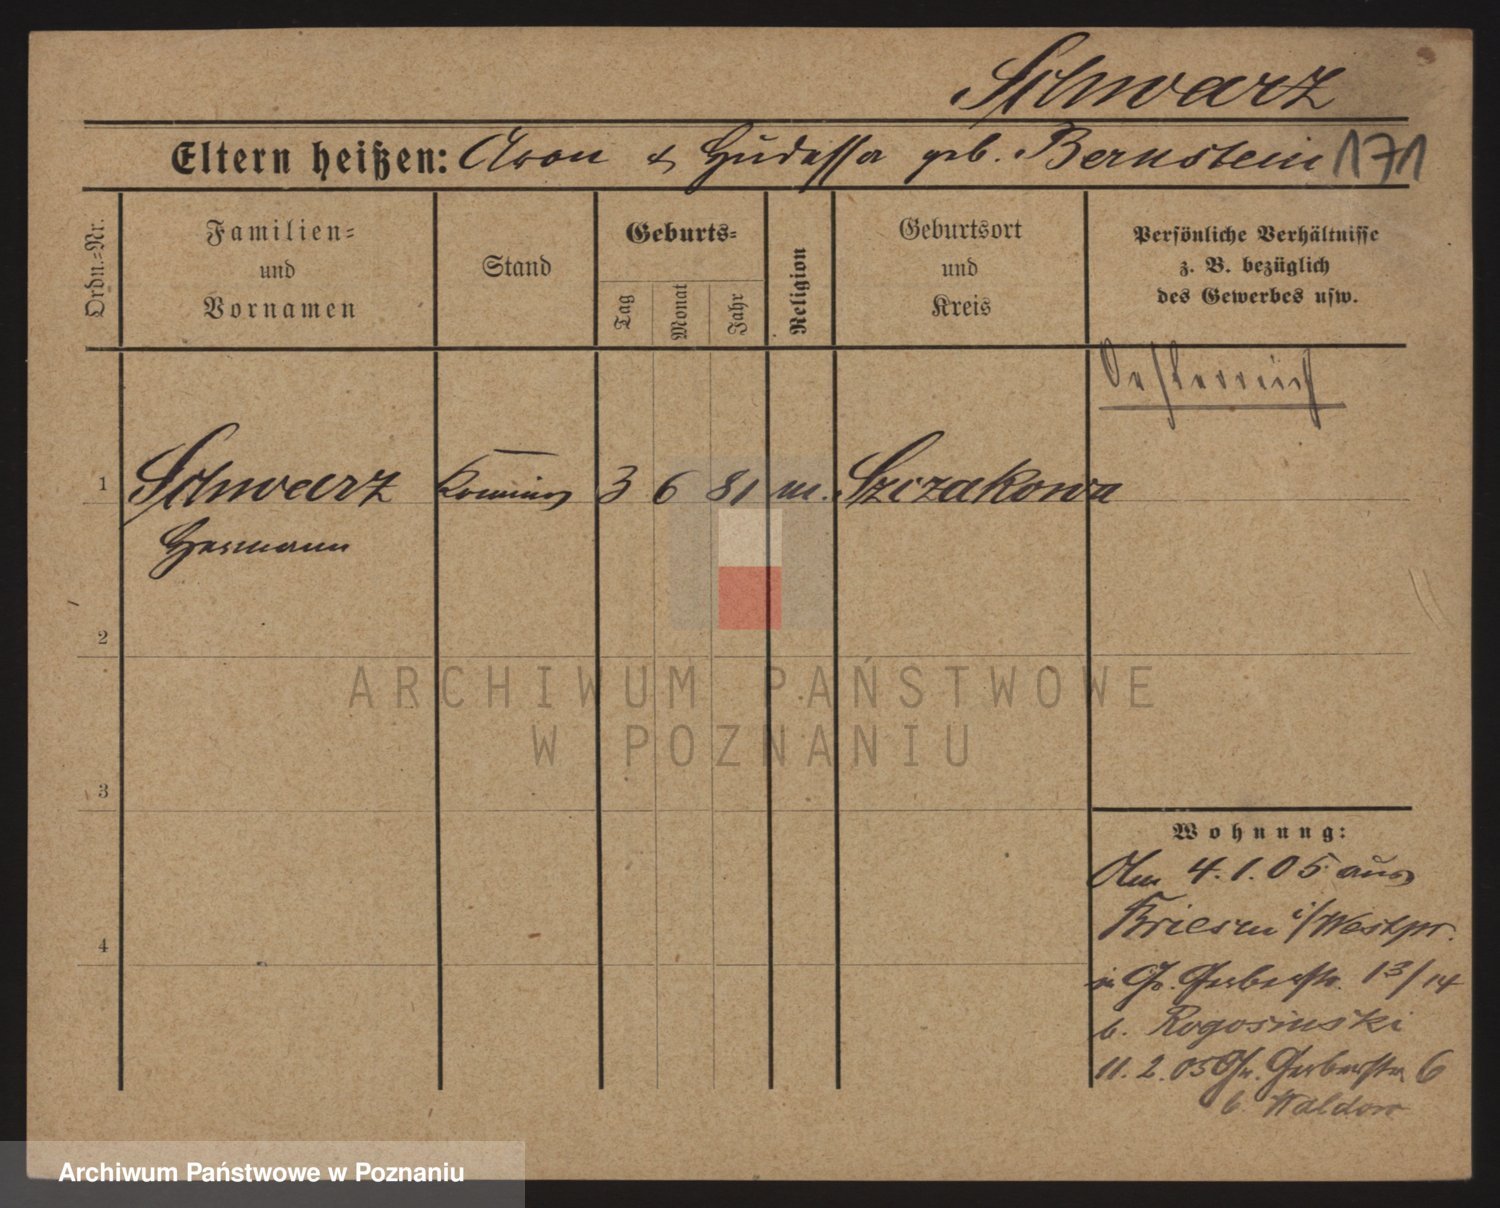 Schwarz
Eltern heißen: Aron & Hudessa geb. Bernstein 171
Ordn.=Nr.
Familien=
und
Vornamen
Stand
Geburts=
Tag
Monat
Jahr
Religion
Geburtsort
und
Kreis
Persönliche Verhältnisse
z. B. bezüglich
des Gewerbes usw.
Oesterreich
1 Schwarz Kommis 3 6 81 m. Szczakowa
Hermann
2
3
4
Wohnung:
Am 4.1.05 aus
Briesen i/Westpr.
in Gr. Gerberstr. 13/14
b. Rogosinski
11.2.05 Gr. Gerberstr. 6
b. Waldow
ARCHIWUM PAŃSTWOWE
W POZNANIU
Archiwum Państwowe w Poznaniu